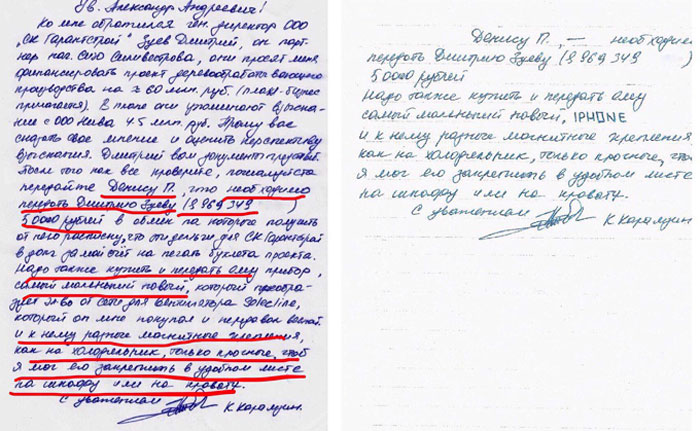 Ув. Александр Андреевич!
Ко мне обратился ген. директор ООО
"СК Гарантстрой" Зуев Дмитрий, он парт-
нер Сило Силивестрова, они просят меня
финансировать проект деревообрабатывающего
производства на ≈ 60 млн. руб. (план-бизнес
прилагается). В плане они упоминают взыска-
ние с ООО Нива 45 млн. руб. Прошу вас
сказать свое мнение и оценить перспективу
взыскания. Дмитрий вам документы предоставит.
После того как все проверите, пожалуйста
передайте Денису П., что необходимо
передать Дмитрию Зуеву (8 969 349 )
50000 рублей в обмен на которые получить
от него расписку, что эти деньги для СК Гарантстрой
в долг за мой счёт на печать буклета проекта.
Надо также купить и передать ему прибор,
самый маленький новый, который преобра-
зует эл-во от сети для вентилятора
который он мне покупал и передавал весной.
и к нему разные магнитные крепления,
как на холодильник, только прочные, чтоб
я мог его закрепить в удобном месте
на шкафу или на кровати.
С уважением К. Карамзин.
Денису П., — необходимо
передать Дмитрию Зуеву (8 969 349 )
50000 рублей
Надо также купить и передать ему
самый маленький новый, IPHONE
и к нему разные магнитные крепления,
как на холодильник, только прочные, чтоб
я мог его закрепить в удобном месте
на шкафу или на кровати.
С уважением
К. Карамзин.